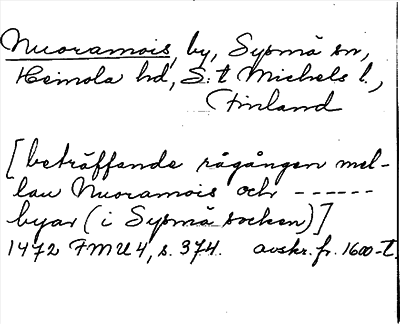 Nuoramois, by, Sysmä sn,
Heinola hd, S:t Michels l.,
Finland
[beträffande rågången mel-
lan Nuoramois och ------
byar (i Sysmä socken)]
1472 FMU 4, s. 374. avskr. fr. 1600-t.